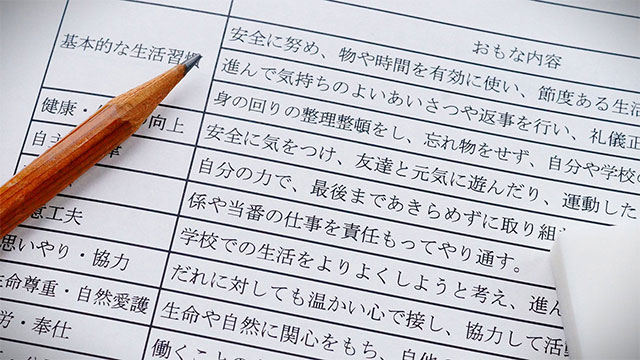 おもな内容
基本的な生活習
安全に努め、物や時間を有効に使い、節度ある生活
進んで気持ちのよいあいさつや返事を行い、礼儀正
健康・
の向上
身の回りの整理整頓をし、忘れ物をせず、自分や学校の
安全に気をつけ、友達と元気に遊んだり、運動した
自主
自分の力で、最後まであきらめずに取り組
係や当番の仕事を責任もってやり通す。
工夫
学校での生活をよりよくしようと考え、進ん
思いやり・協力
だれに対しても温かい心で接し、協力して活
生命尊重・自然愛護
生命や自然に関心をもち、自他
労・奉仕
働くことの